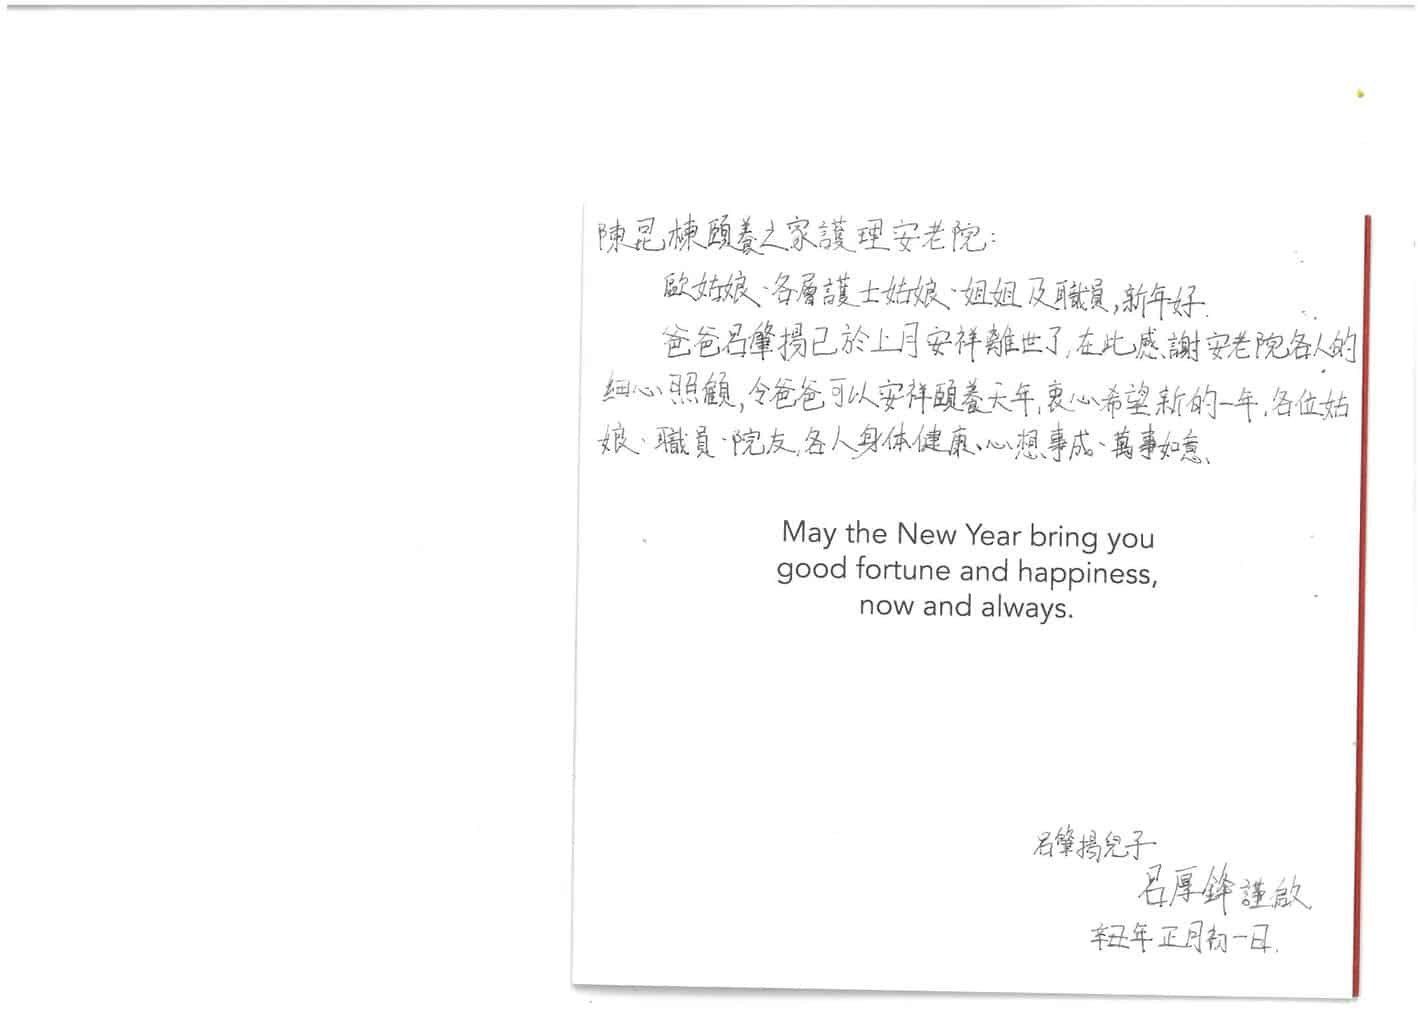 陳昆棟頤養之家護理安老院：
歐姑娘、各層護士姑娘、姐姐及職員，新年好.
爸爸呂肇揚已於上月安祥離世了，在此感謝安老院各人的
細心照顧，令爸爸可以安祥頤養天年，衷心希望新的一年，各位姑
娘、職員、院友，各人身体健康、心想事成、萬事如意、
May the New Year bring you
good fortune and happiness,
now and always.
呂肇揚兒子
呂厚鋒謹啟
辛丑年正月初一日.